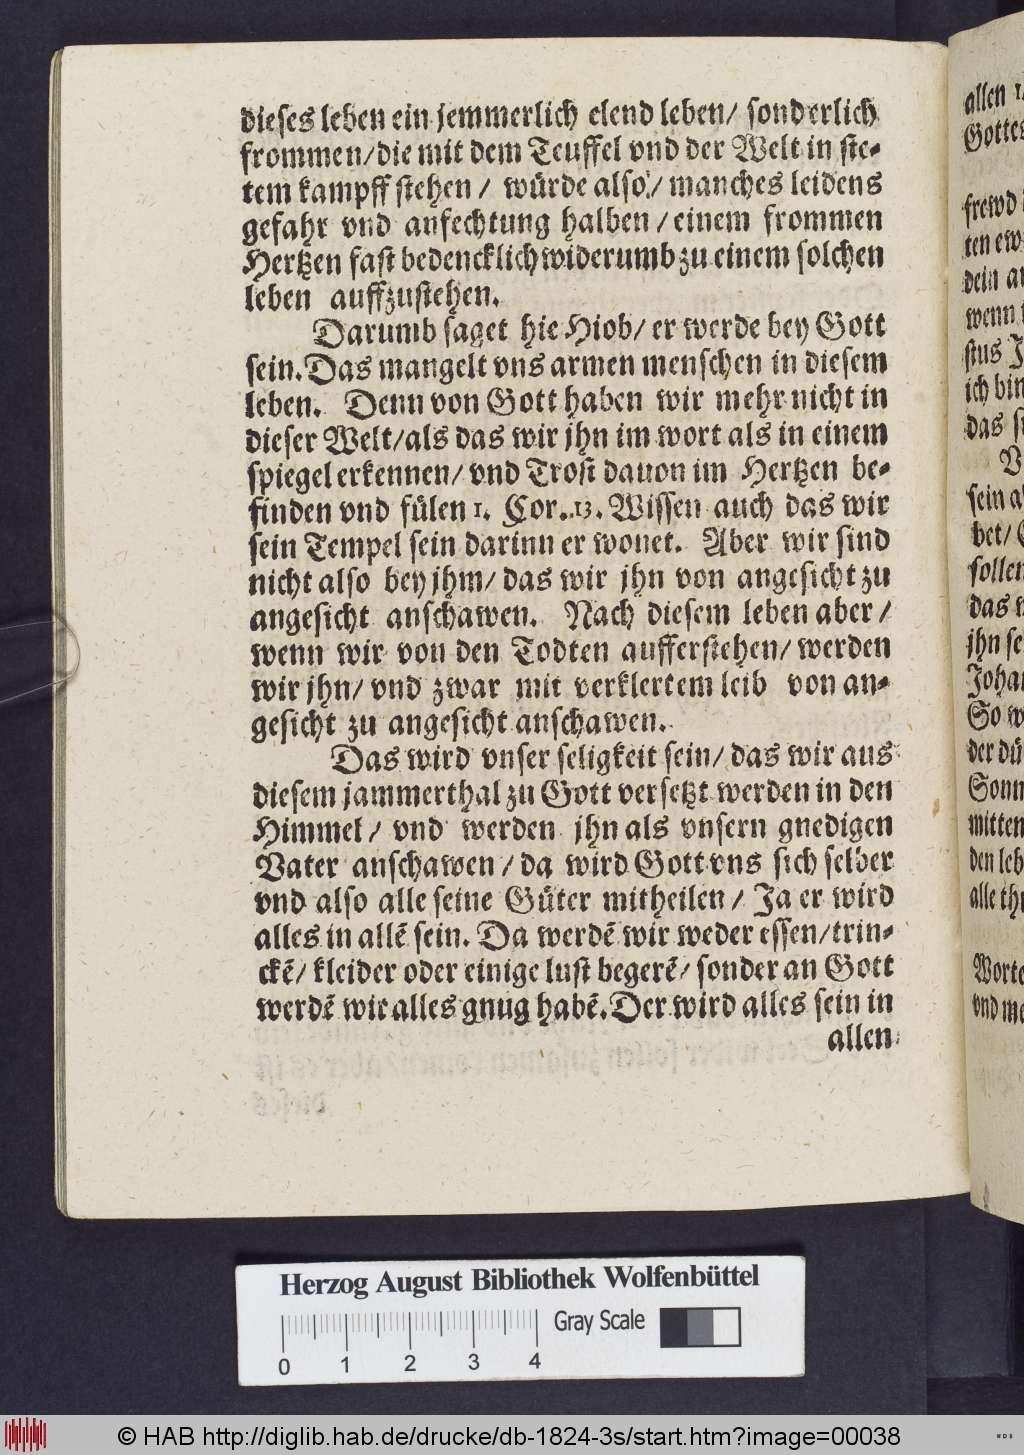 dieses leben ein jemmerlich elend leben/ sonderlich
frommen/die mit dem Teuffel vnd der Welt in ste-
tem kampff stehen / würde also / manches leidens
gefahr vnd anfechtung halben / einem frommen
Hertzen fast bedencklich widerumb zu einem solchen
leben auffzustehen.
Darumb saget hie Hiob/ er werde bey Gott
sein. Das mangelt vns armen menschen in diesem
leben. Denn von Gott haben wir mehr nicht in
dieser Welt/als das wir jhn im wort als in einem
spiegel erkennen/ vnd Trost dauon im Hertzen be-
finden vnd fülen 1. Cor. 13. Wissen auch das wir
sein Tempel sein darinn er wonet. Aber wir sind
nicht also bey jhm/ das wir jhn von angesicht zu
angesicht anschawen. Nach diesem leben aber /
wenn wir von den Todten aufferstehen/ werden
wir jhn/ vnd zwar mit verklertem leib von an-
gesicht zu angesicht anschawen.
Das wird vnser seligkeit sein/ das wir aus
diesem jammerthal zu Gott versetzt werden in den
Himmel / vnd werden jhn als vnsern gnedigen
Vater anschawen / da wird Gott vns sich selber
vnd also alle seine Güter mitheilen / Ja er wird
alles in allē sein. Da werdē wir weder essen/trin-
ckē/ kleider oder einige lust begerē/ sonder an Gott
werdē wir alles gnug habē. Der wird alles sein in
allen
allen
Gottes
frewd
ten
dein
wenn
stus
ich bin
das
sein
bet/
sollen
das
jhn
So
der
Sonn
mitten
den
alle
Worte
vnd
Herzog August Bibliothek Wolfenbüttel
Gray Scale
0 1 2 3 4
© HAB http://diglib.hab.de/drucke/db-1824-3s/start.htm?image=00038